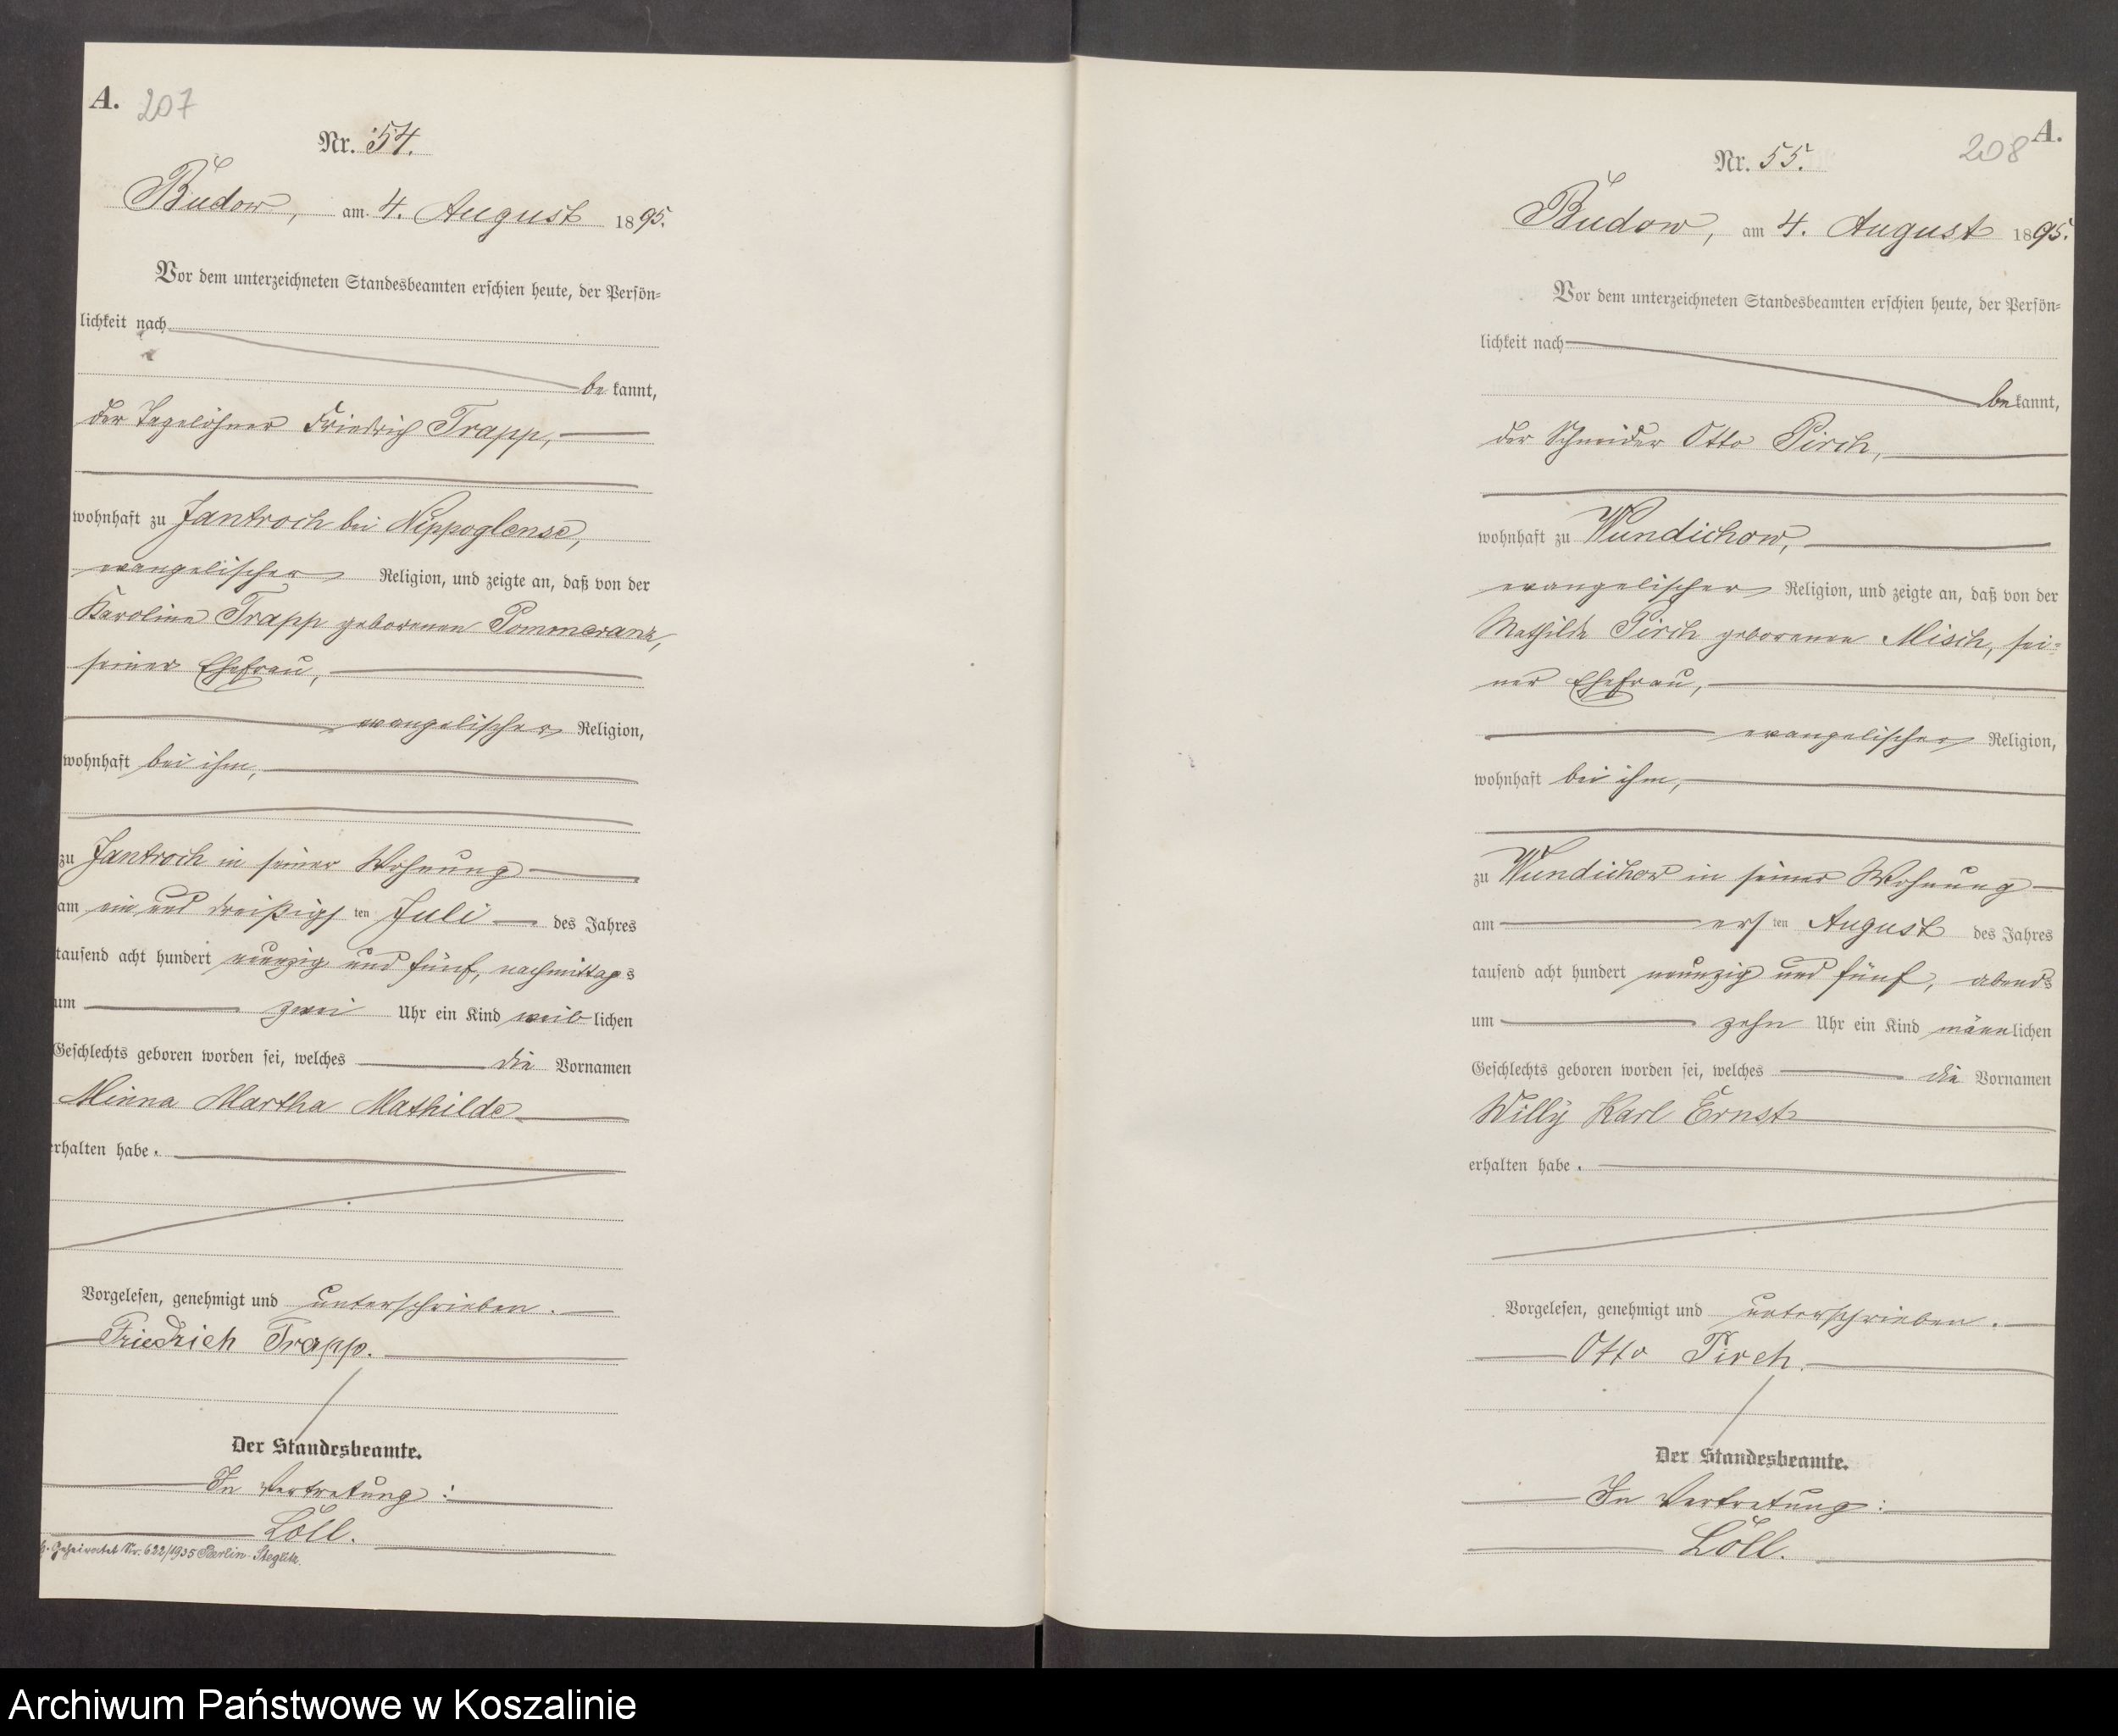 A. 207
Nr. 54.
Budow, am 4. August 1895.
Vor dem unterzeichneten Standesbeamten erschien heute, der Persön-
lichkeit nach
be kannt,
der Tagelöhner Friedrich Trapp,
wohnhaft zu Jantroch bei Nippoglense,
evangelischer Religion, und zeigte an, daß von der
Karoline Trapp geborenen Pommeranz,
seiner Ehefrau,
evangelischer Religion,
wohnhaft bei ihm,
zu Jantroch in seiner Wohnung
am ein und dreißigs ten Juli des Jahres
tausend acht hundert neunzig und fünf, nachmittags
um zwei Uhr ein Kind weib lichen
Geschlechts geboren worden sei, welches die Vornamen
Minna Martha Mathilde
erhalten habe.
Vorgelesen, genehmigt und unterschrieben.
Friedrich Trapp.
Der Standesbeamte.
In Vertretung:
Löll.
Geheiratet Nr. 622/1935 Berlin-Steglitz.
208 A.
Nr. 55.
Budow, am 4. August 1895.
Vor dem unterzeichneten Standesbeamten erschien heute, der Persön-
lichkeit nach
be kannt,
der Schneider Otto Pirch,
wohnhaft zu Wundichow,
evangelischer Religion, und zeigte an, daß von der
Mathilde Pirch geborenen Misch, sei-
ner Ehefrau,
evangelischer Religion,
wohnhaft bei ihm,
zu Wundichow in seiner Wohnung
am ers ten August des Jahres
tausend acht hundert neunzig und fünf, abends
um zehn Uhr ein Kind männlichen
Geschlechts geboren worden sei, welches die Vornamen
Willy Karl Ernst
erhalten habe.
Vorgelesen, genehmigt und unterschrieben.
Otto Pirch.
Der Standesbeamte.
In Vertretung:
Löll.
Archiwum Państwowe w Koszalinie